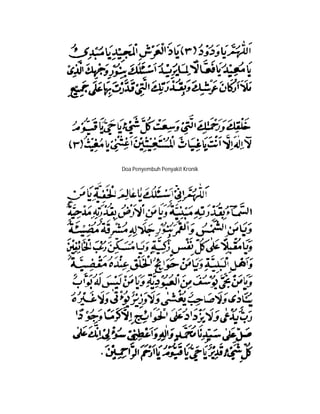 اَللّٰهُمَّ يَاوَدُوْدُ (٣) يَاذَا الْعَرْشِ الْمَجِيْدِ يَا مُبْدِئُ
يَا مُعِيْدُ يَا فَعَّالًا لِمَا يُرِيْدُ اَسْئَلُكَ بِنُوْرِ وَجْهِكَ الَّذِيْ
مَلَأَ اَرْكَانَ عَرْشِكَ وَبِقُدْرَتِكَ الَّتِيْ قَدَّرْتَ بِهَا عَلٰى جَمِيْعِ
خَلْقِكَ وَبِرَحْمَتِكَ الَّتِيْ وَسِعَتْ كُلَّ شَيْءٍ يَا حَيُّ يَا قَيُّوْمُ
لَا اِلٰهَ اِلَّا اَنْتَ يَا غِيَاثَ الْمُسْتَغِيْثِيْنَ اَغِثْنِيْ يَا مُغِيْثُ (٣)
Doa Penyembuh Penyakit Kronik
اَللّٰهُمَّ اِنِّيْ اَسْئَلُكَ يَا عَالِمَ الْخَفِيَّةِ يَا مَنِ
السَّمَآءُ بِقُدْرَتِهِ مَبْنِيَّةٌ وَيَا مَنِ الْاَرْضُ بِقُدْرَتِهِ مَدْحِيَّةٌ
وَيَا مَنِ الشَّمْسُ وَالْقَمَرُ بِنُوْرِ جَلَالِهِ مُشْرِقَةٌ مُضِيْئَةٌ
وَيَا مُقْبِلًا عَلٰى كُلِّ نَفْسٍ زَكِيَّةٍ وَيَا مُسَكِّنَ رُعْبِ الْخَائِفِيْنَ
وَاَهْلِ الْبَلِيَّةِ وَيَا مَنْ حَوَائِجُ الْخَلْقِ عِنْدَهُ مَقْضِيَّةٌ
وَيَا مَنْ نَجّٰى يُوْسُفَ مِنَ الْعُبُوْدِيَّةِ وَيَا مَنْ لَيْسَ لَهُ بَوَّابٌ
يُنَادٰى وَلَا صَاحِبٌ يُغْشٰى وَلَا وَزِيْرٌ يُؤْتٰى وَلَا غَيْرُهُ
رَبٌّ يُدْعٰى وَلَا يَزْدَادُ عَلَى الْحَوَائِجِ اِلَّا كَرَمًا وَجُوْدًا
صَلِّ عَلٰى سَيِّدِنَا مُحَمَّدٍ وَاٰلِهِ وَاَعْطِنِيْ سُؤْلِيْ اِنَّكَ عَلٰى
كُلِّ شَيْءٍ قَدِيْرٌ يَا حَيُّ يَا قَيُّوْمُ يَا اَرْحَمَ الرَّاحِمِيْنَ .